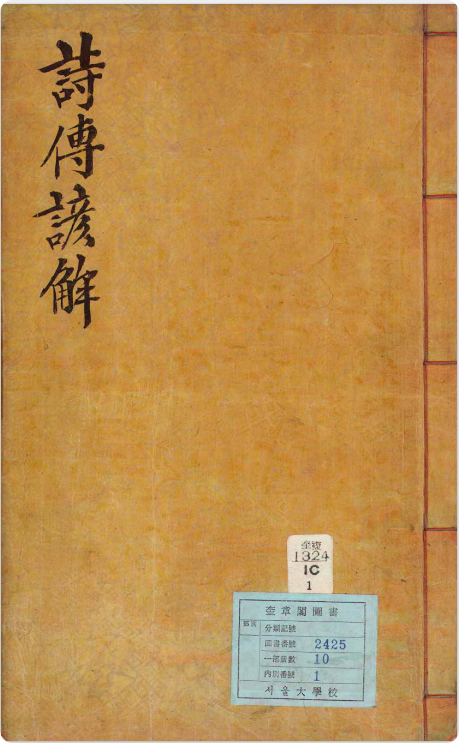 詩傳諺觧
奎複
1324
1C
1
奎章閣圖書
分類記號
圖書番號 2425
一部册數 10
內別番號 1
서울大學校